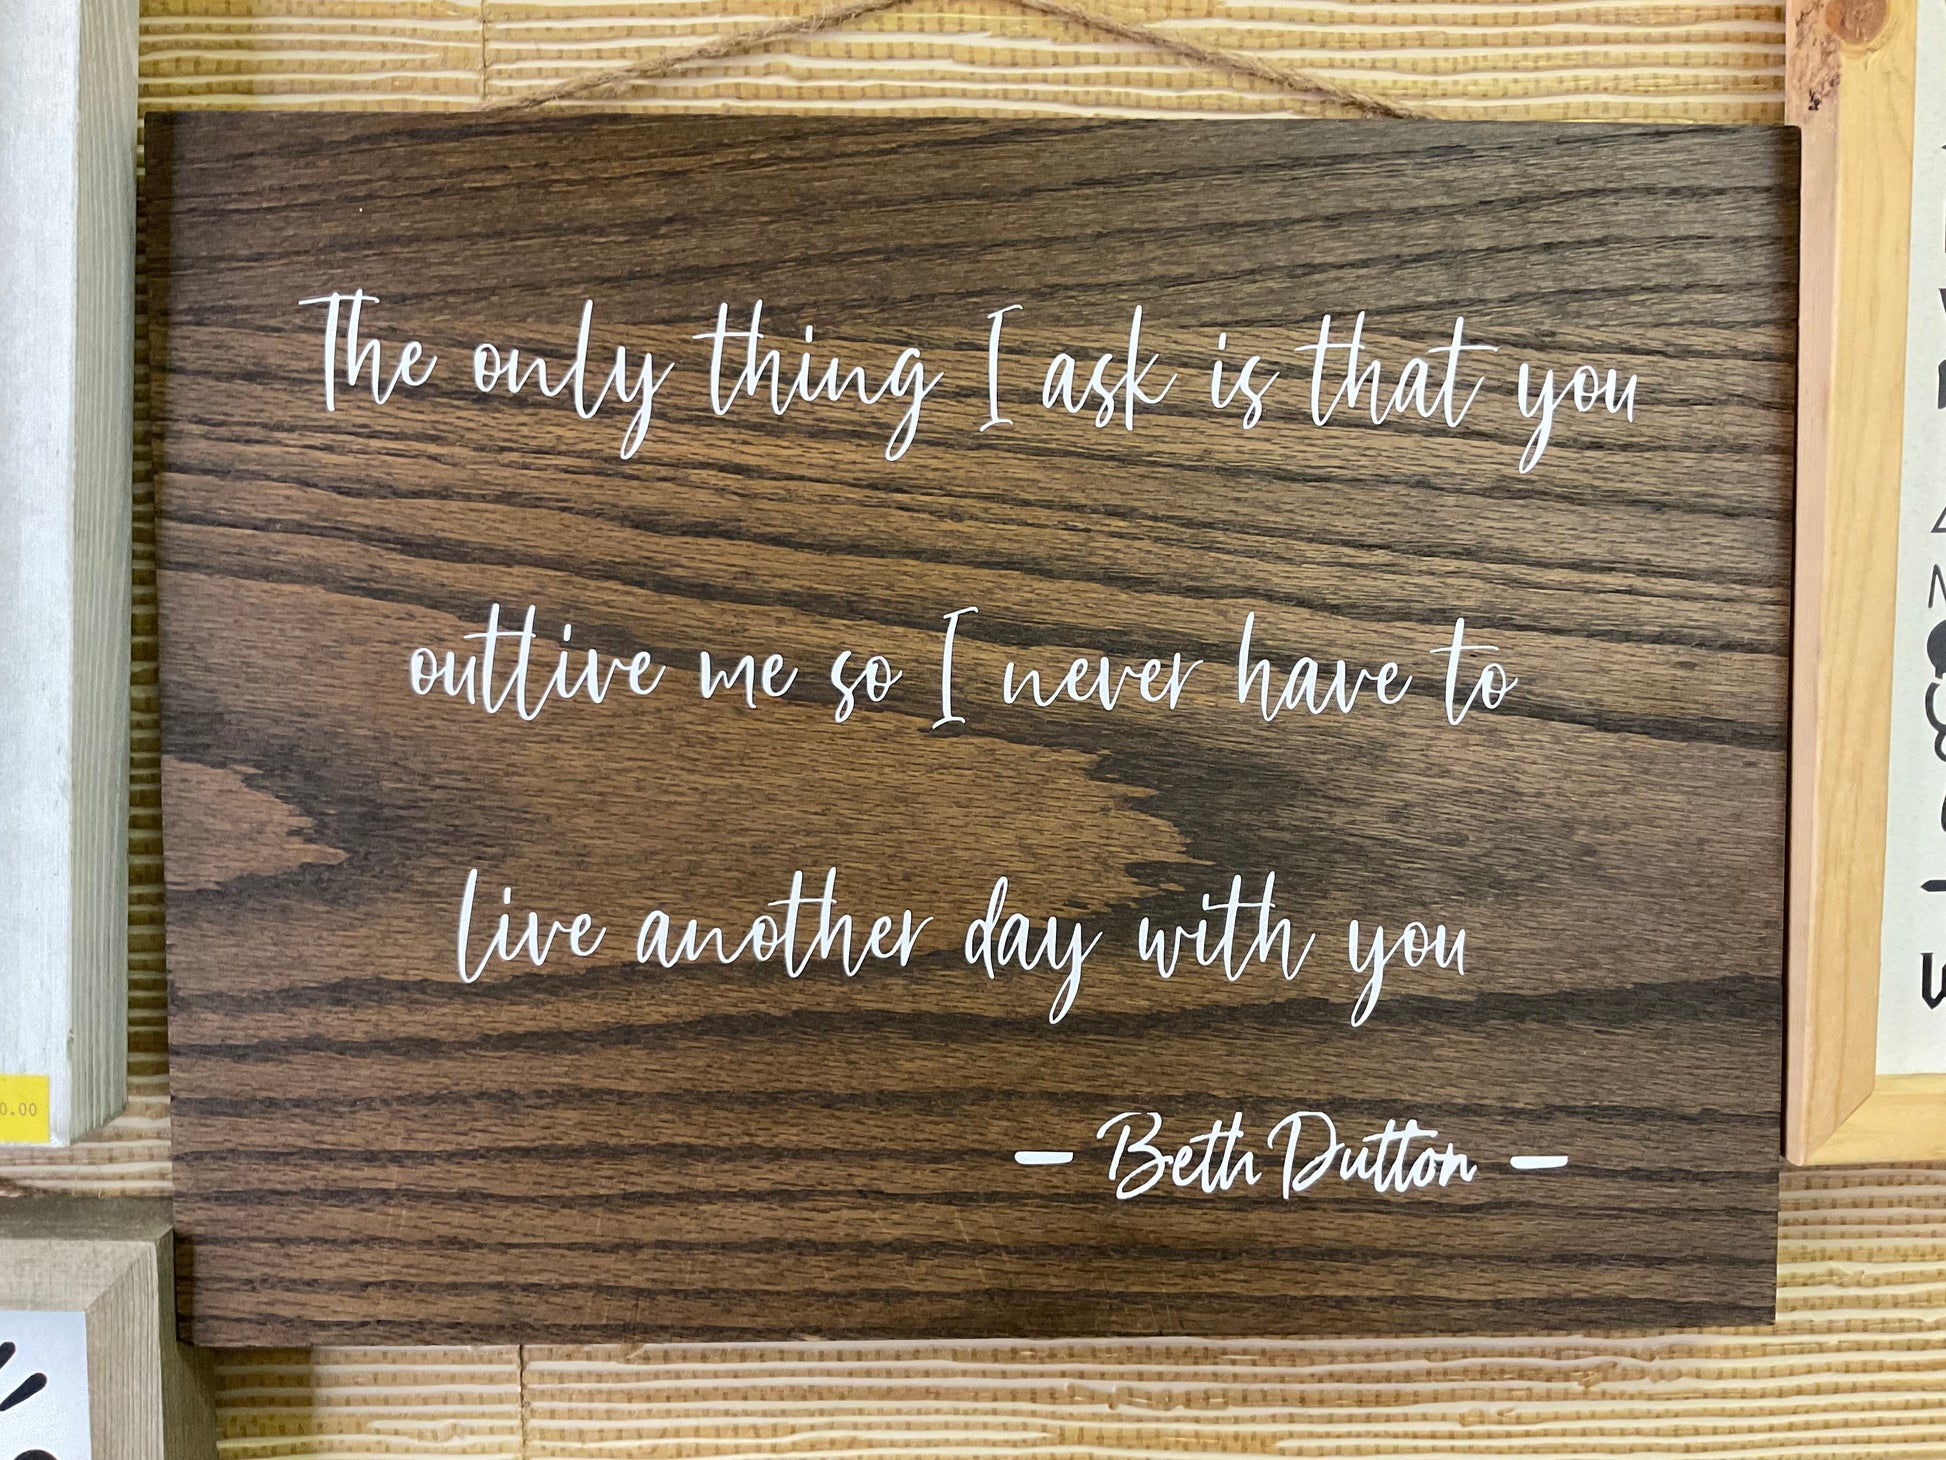 The only thing I ask is that you
outlive me so I never have to
live another day with you
– Beth Dutton –
0.00